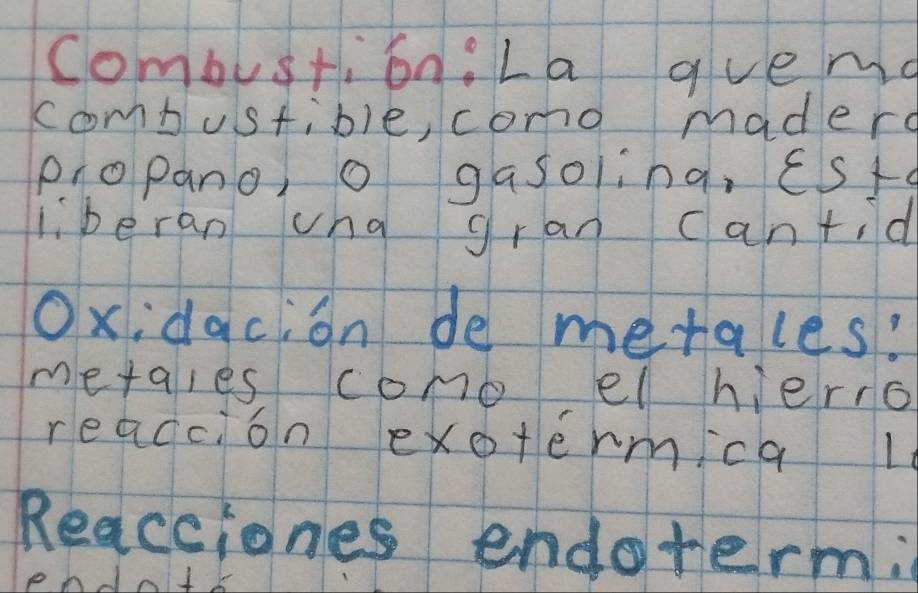 Combustión: La quema
combustible, como madera
propano, o gasolina. Esta
liberan una gran cantid
Oxidación de metales:
metales como el hierro
reacción exotérmica l
Reacciones endotermi
endoté